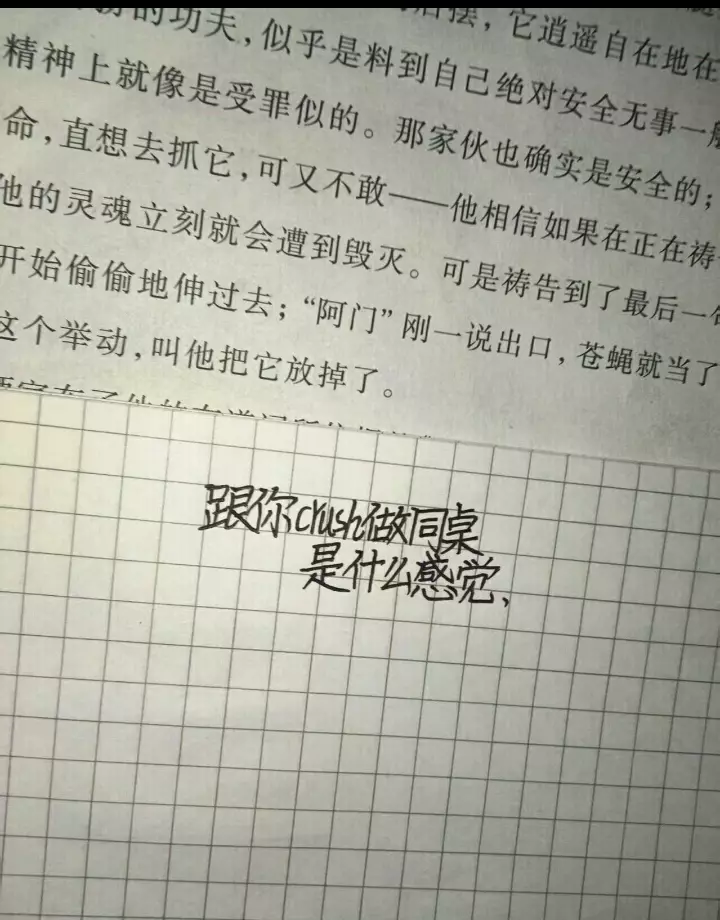 的功夫，似乎是料到自己绝对安全无事一般
后摆，它逍遥自在地在
精神上就像是受罪似的。那家伙也确实是安全的；
命，直想去抓它，可又不敢——他相信如果在正在祷
他的灵魂立刻就会遭到毁灭。可是祷告到了最后一句
开始偷偷地伸过去；“阿门”刚一说出口，苍蝇就当了
这个举动，叫他把它放掉了。
跟你crush做同桌
是什么感觉、